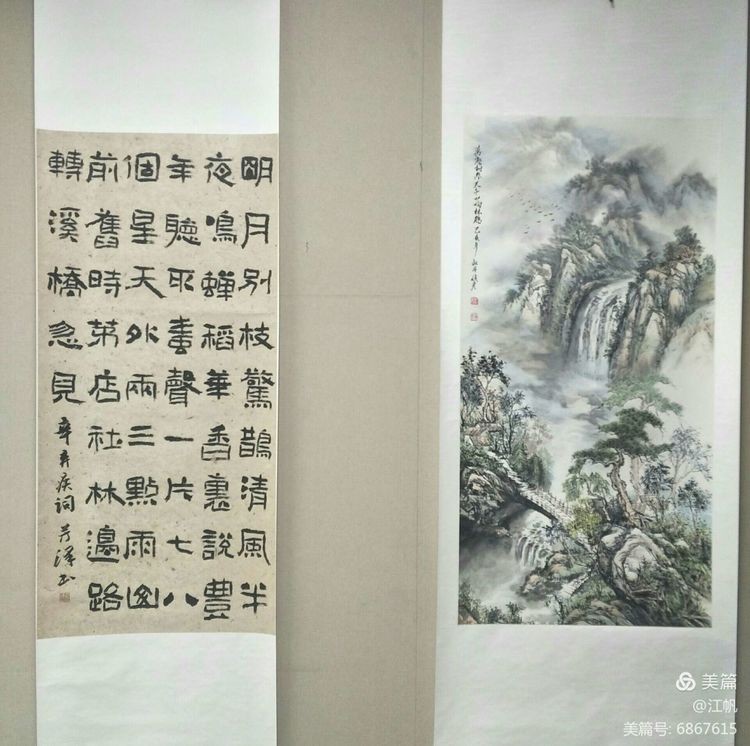 明月别枝驚鵲清風半
夜鳴蟬稻華香裏說豊
年聽取蛙聲一片七八
個星天外兩三點雨山
前舊時茅店社林邊路
轉溪橋急見
辛弃疾詞
己亥年
美篇
@江帆
美篇号: 6867615